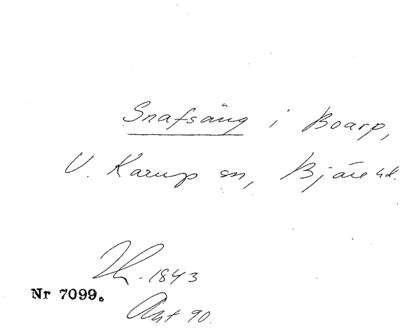 Snafsäng i Boarp,
V. Karup sn, Bjäre hd.
1843
Nr 7099.
Akt 90.